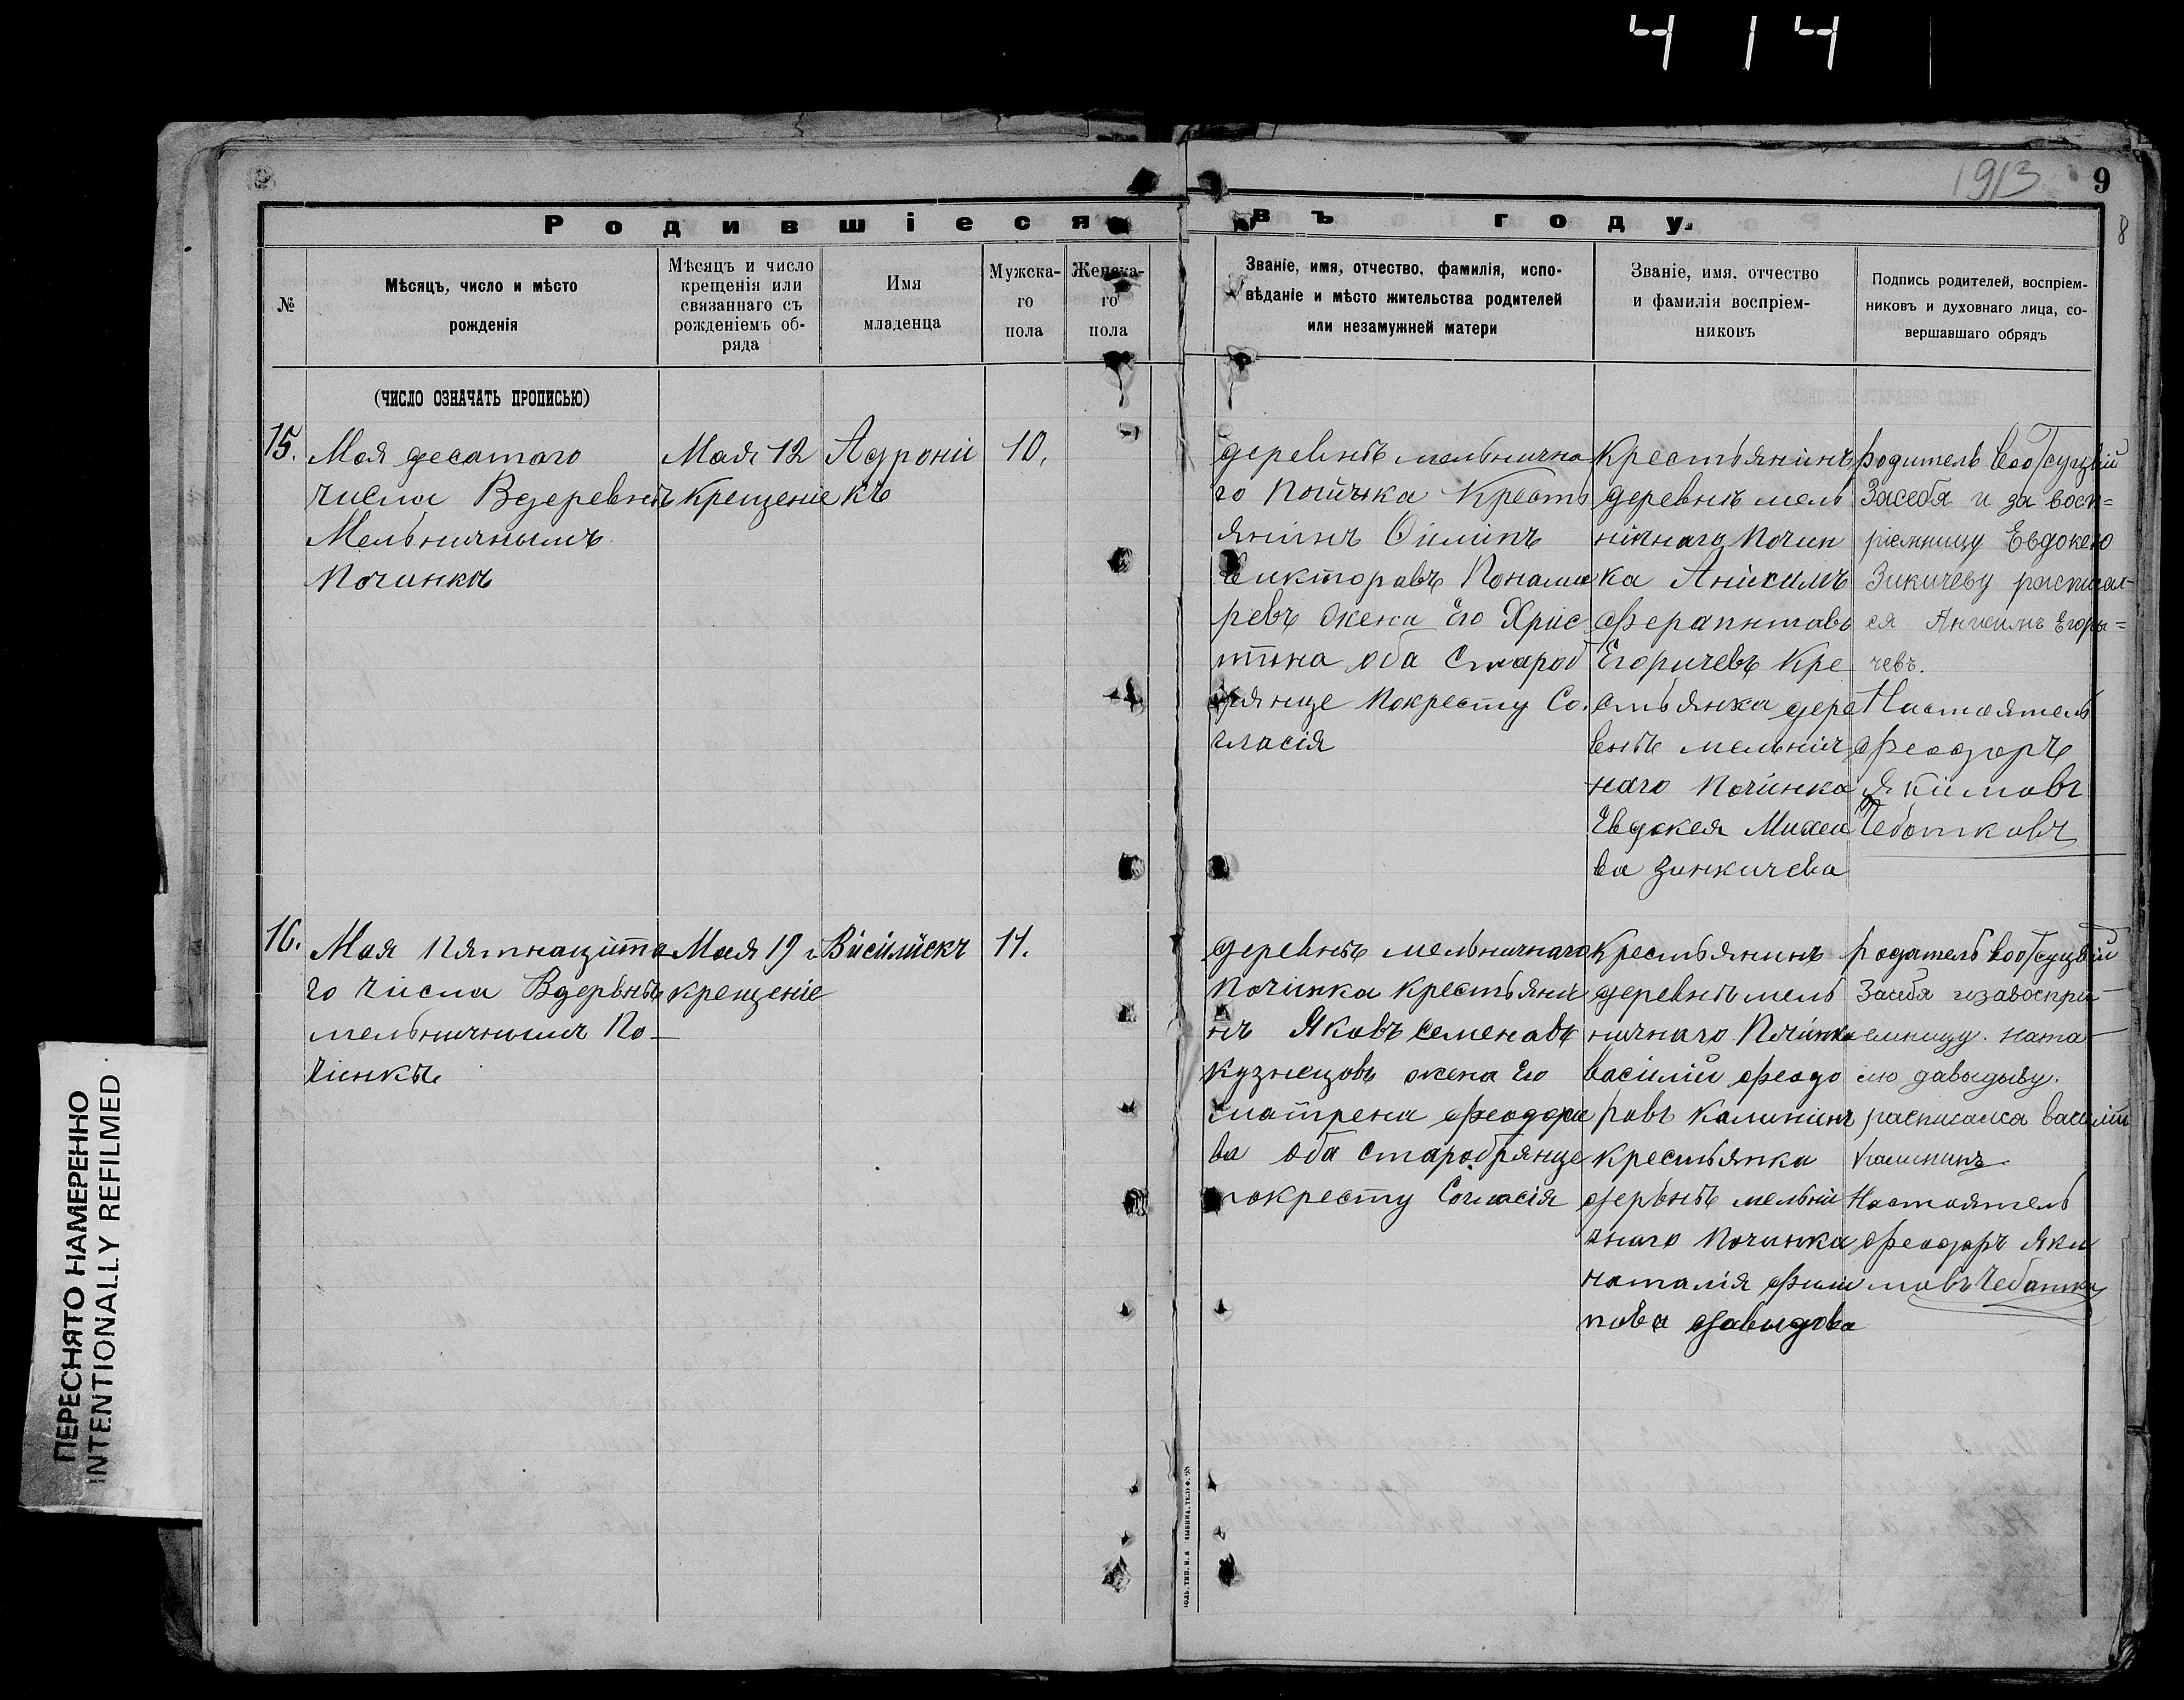 4 14
1913
9
8
Родившіеся въ году.
№
Мѣсяцъ, число и мѣсто
рожденія
Мѣсяцъ и число
крещенія или
связаннаго съ
рожденіемъ об-
ряда
Имя
младенца
Мужска-
го
пола
Женска-
го
пола
Званіе, имя, отчество, фамилія, испо-
вѣданіе и мѣсто жительства родителей
или незамужней матери
Званіе, имя, отчество
и фамилія воспріем-
никовъ
Подпись родителей, воспріем-
никовъ и духовнаго лица, со-
вершавшаго обрядъ
(ЧИСЛО ОЗНАЧАТЬ ПРОПИСЬЮ)
15.
Мая десатаго
числа Вдеревнѣ
Мельничнымъ
Починкѣ
Мая 12
Крещеніе
Адроні
къ
10.
деревнѣ мельнична
го Починка Кресть
янинъ
Викторавъ Понама
ревъ жена Его Хрис
тина оба Старод
рянце Покресту Со.
гласія
Крестьянинъ
деревнѣ мель
ничнаго Почин
ка Анисимъ
Ферапнтавъ
Егоричевъ Кре
стьянка дере
внѣ мельнич
наго Починка
Евдокея Михеи
ва Зинкичева
родитель
Засебя и за восп=
ріемницу Евдокею
Зикичеву расписал-
ся Анисимъ Егоры=
чевъ.
Настоятель
Феодоръ
Якимовъ
Чеботковъ
16.
Мая Пятнацита
го числа Вдервнѣ
мельничнымъ По-
чинкѣ
Мая 19 г.
крещеніе
Висилискъ
11.
деревнѣ мельничнаго
Починка крестьяни
нъ Яковъ Семенавъ
Кузнецовъ жена Его
матрена Феодора
ва оба старобрянце
покресту Согласія
Крестьянинъ
деревнѣ мель
ничнаго Починка
Василий Феодо
ровъ Калининъ
крестьянка
дервнѣ мельни
чнаго Починка
наталія Фили
пова Давидова
родитель
Засебя изавоспри-
емницу. ната-
лю давыдыву.
расписалса василий
Калининъ
Настоятель
Феодоръ Яки
мовъ Чебатка
ПЕРЕСНЯТО НАМЕРЕННО
INTENTIONALLY REFILMED